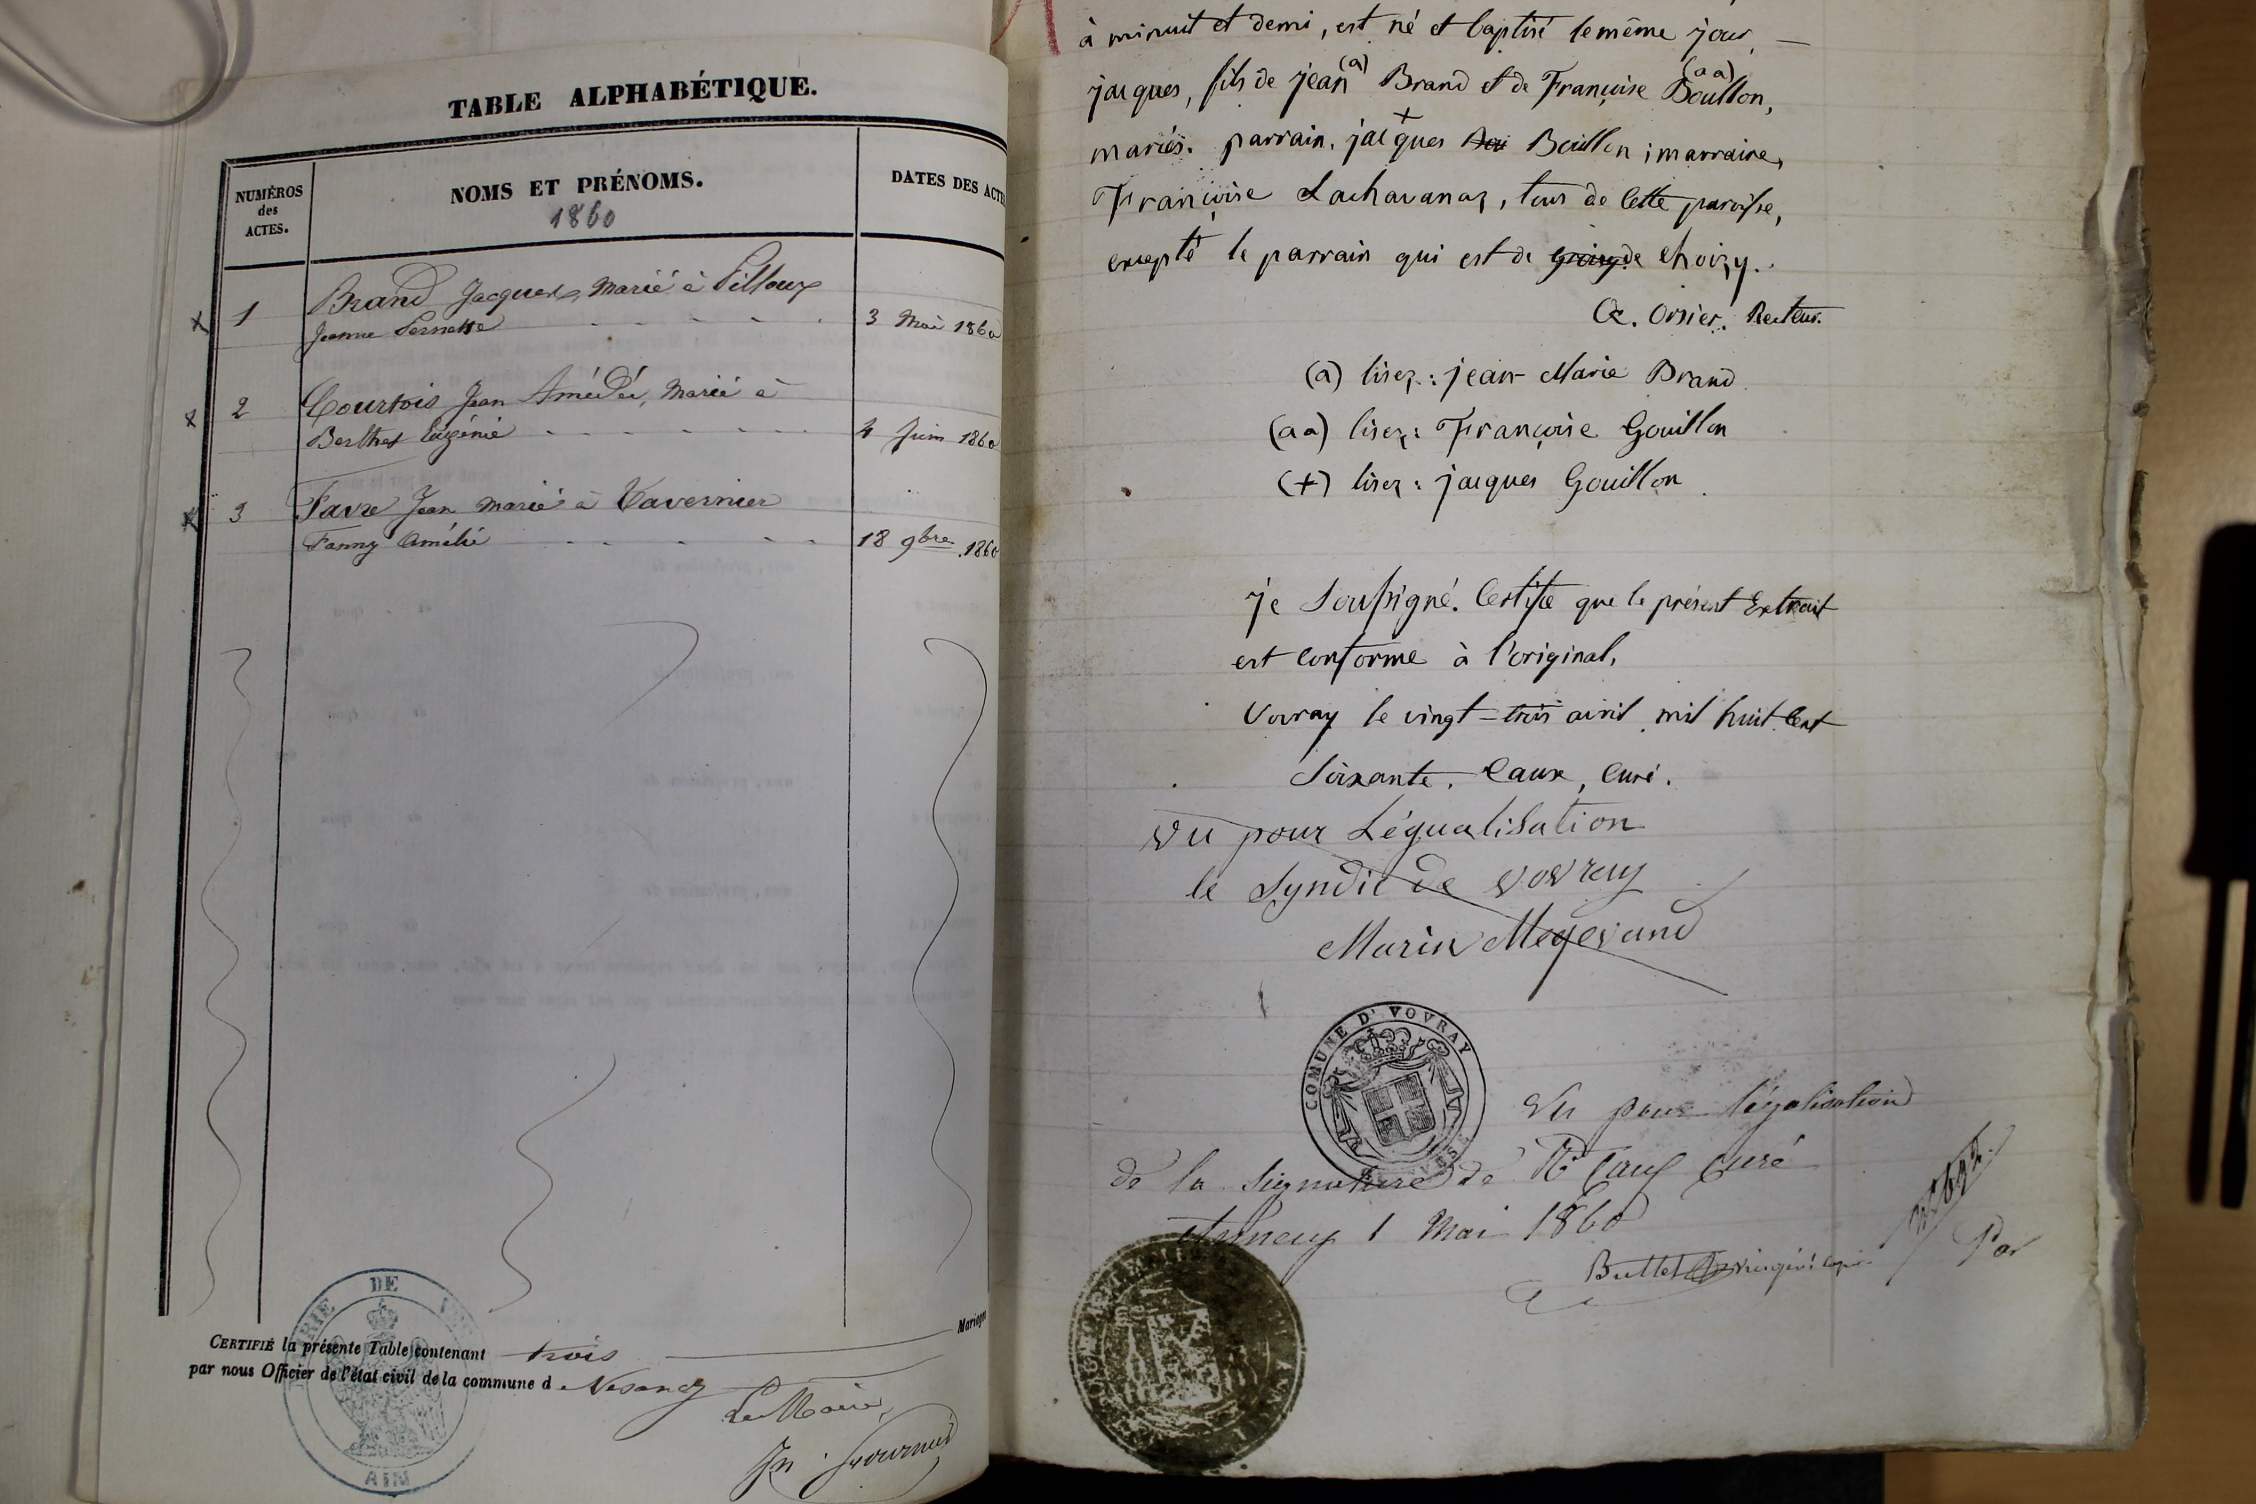 TABLE ALPHABÉTIQUE.
NUMÉROS
des
ACTES.
NOMS ET PRÉNOMS.
1860
DATES DES ACTES
1 Brand Jacques, marié à Pilloux
Jeanne Pernette - - - - - - 3 Mai 1860
2 Courtois Jean Amédée, marié à
Berthet Eugénie - - - - - - - 4 Juin 1860
3 Favre Jean marié à Tavernier
Fanny Amélie - - - - - - 18 9bre 1860
Mariages
CERTIFIÉ la présente Table contenant trois
par nous Officier de l'état civil de la commune d
Le Maire,
MAIRIE DE
AIN
à minuit et demi, est né et baptisé le même jour, —
jacques, fils de jean (a) Brand et de Françoise Bouillon, (aa)
mariés. parrain, jacques + Bouillon ; marraine,
Françoise Lachavanaz, tous de cette paroisse,
excepté le parrain qui est de de Choizy.
Orsier. Recteur.
(a) lisez : jean-Marie Brand
(aa) lisez : Françoise Gouillon
(+) lisez : jacques Gouillon
je soussigné. Certifie que le présent Extrait
est conforme à l'original,
Vovray le vingt-trois avril mil huit cent
soixante. Caux, Curé.
Vu pour Légualisation
le Syndic de vovray
Marin Megevand
COMUNE D' VOVRAY
Vu pour légalisation
de la signature de Rd Caux Curé
Annecy 1 Mai 1860